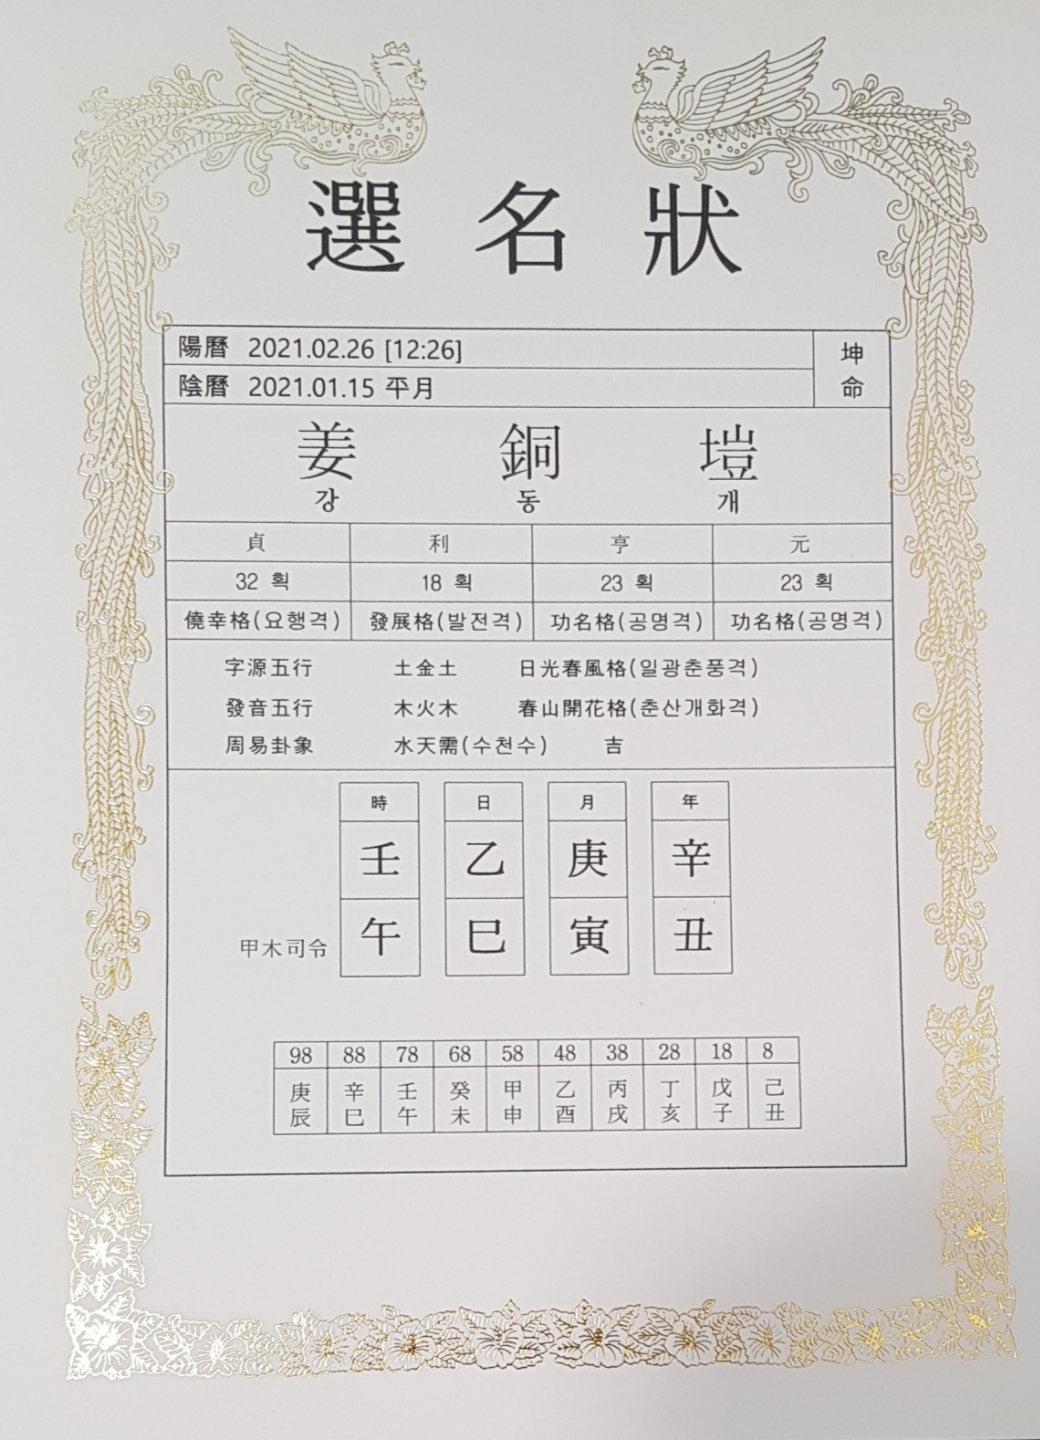 選名狀
陽曆 2021.02.26 [12:26]
陰曆 2021.01.15 平月
坤命
姜 銅 塏
강 동 개
貞 利 亨 元
32 획 18 획 23 획 23 획
僥幸格(요행격) 發展格(발전격) 功名格(공명격) 功名格(공명격)
字源五行 土金土 日光春風格(일광춘풍격)
發音五行 木火木 春山開花格(춘산개화격)
周易卦象 水天需(수천수) 吉
時 日 月 年
壬 乙 庚 辛
甲木司令 午 巳 寅 丑
98 88 78 68 58 48 38 28 18 8
庚 辛 壬 癸 甲 乙 丙 丁 戊 己
辰 巳 午 未 申 酉 戌 亥 子 丑